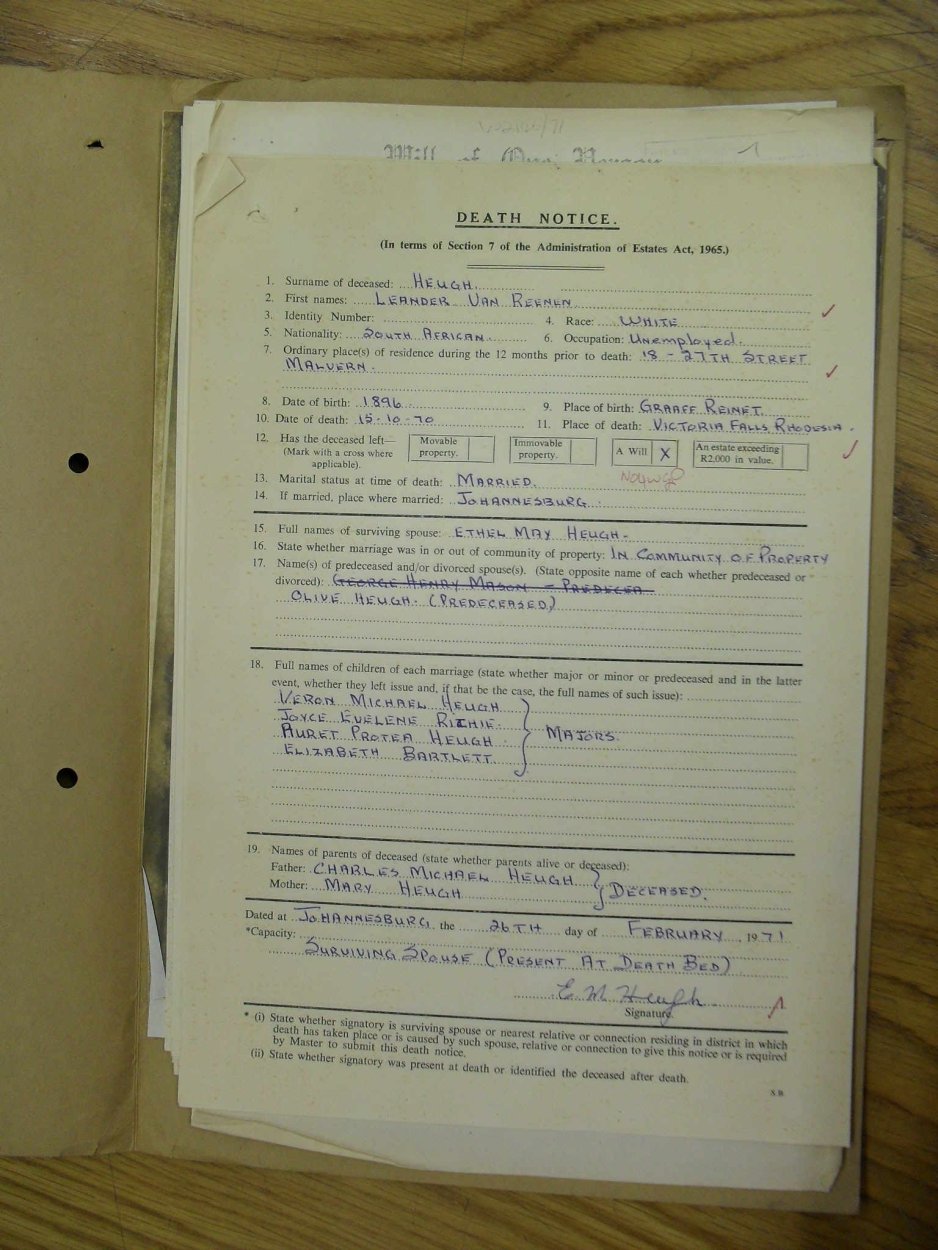 DEATH NOTICE.
(In terms of Section 7 of the Administration of Estates Act, 1965.)
1. Surname of deceased: HEUGH.
2. First names: LEANDER VAN REENEN
3. Identity Number: 4. Race: WHITE
5. Nationality: SOUTH AFRICAN. 6. Occupation: Unemployed.
7. Ordinary place(s) of residence during the 12 months prior to death: 18 - 27TH STREET
MALVERN.
8. Date of birth: 1896 9. Place of birth: GRAAFF REINET.
10. Date of death: 15-10-70 11. Place of death: VICTORIA FALLS RHODESIA.
12. Has the deceased left— Movable property. Immovable property. A Will X An estate exceeding R2,000 in value.
(Mark with a cross where
applicable).
13. Marital status at time of death: MARRIED.
14. If married, place where married: JOHANNESBURG.
15. Full names of surviving spouse: ETHEL MAY HEUGH.
16. State whether marriage was in or out of community of property: IN COMMUNITY OF PROPERTY
17. Name(s) of predeceased and/or divorced spouse(s). (State opposite name of each whether predeceased or
divorced): GEORGE HENRY MASON - PREDECEA
OLIVE HEUGH. (PREDECEASED)
18. Full names of children of each marriage (state whether major or minor or predeceased and in the latter
event, whether they left issue and, if that be the case, the full names of such issue):
VERON MICHAEL HEUGH
JOYCE EVELENE RITHIE.
AURET PROTEA HEUGH. } MAJORS.
ELIZABETH BARTLETT.
19. Names of parents of deceased (state whether parents alive or deceased):
Father: CHARLES MICHAEL HEUGH
Mother: MARY HEUGH } DECEASED.
Dated at JOHANNESBURG the 26TH day of FEBRUARY, 1971
*Capacity:
SURVIVING SPOUSE (PRESENT AT DEATH BED)
E. M. Heugh.
Signature.
* (i) State whether signatory is surviving spouse or nearest relative or connection residing in district in which
death has taken place or is caused by such spouse, relative or connection to give this notice or is required
by Master to submit this death notice.
(ii) State whether signatory was present at death or identified the deceased after death.